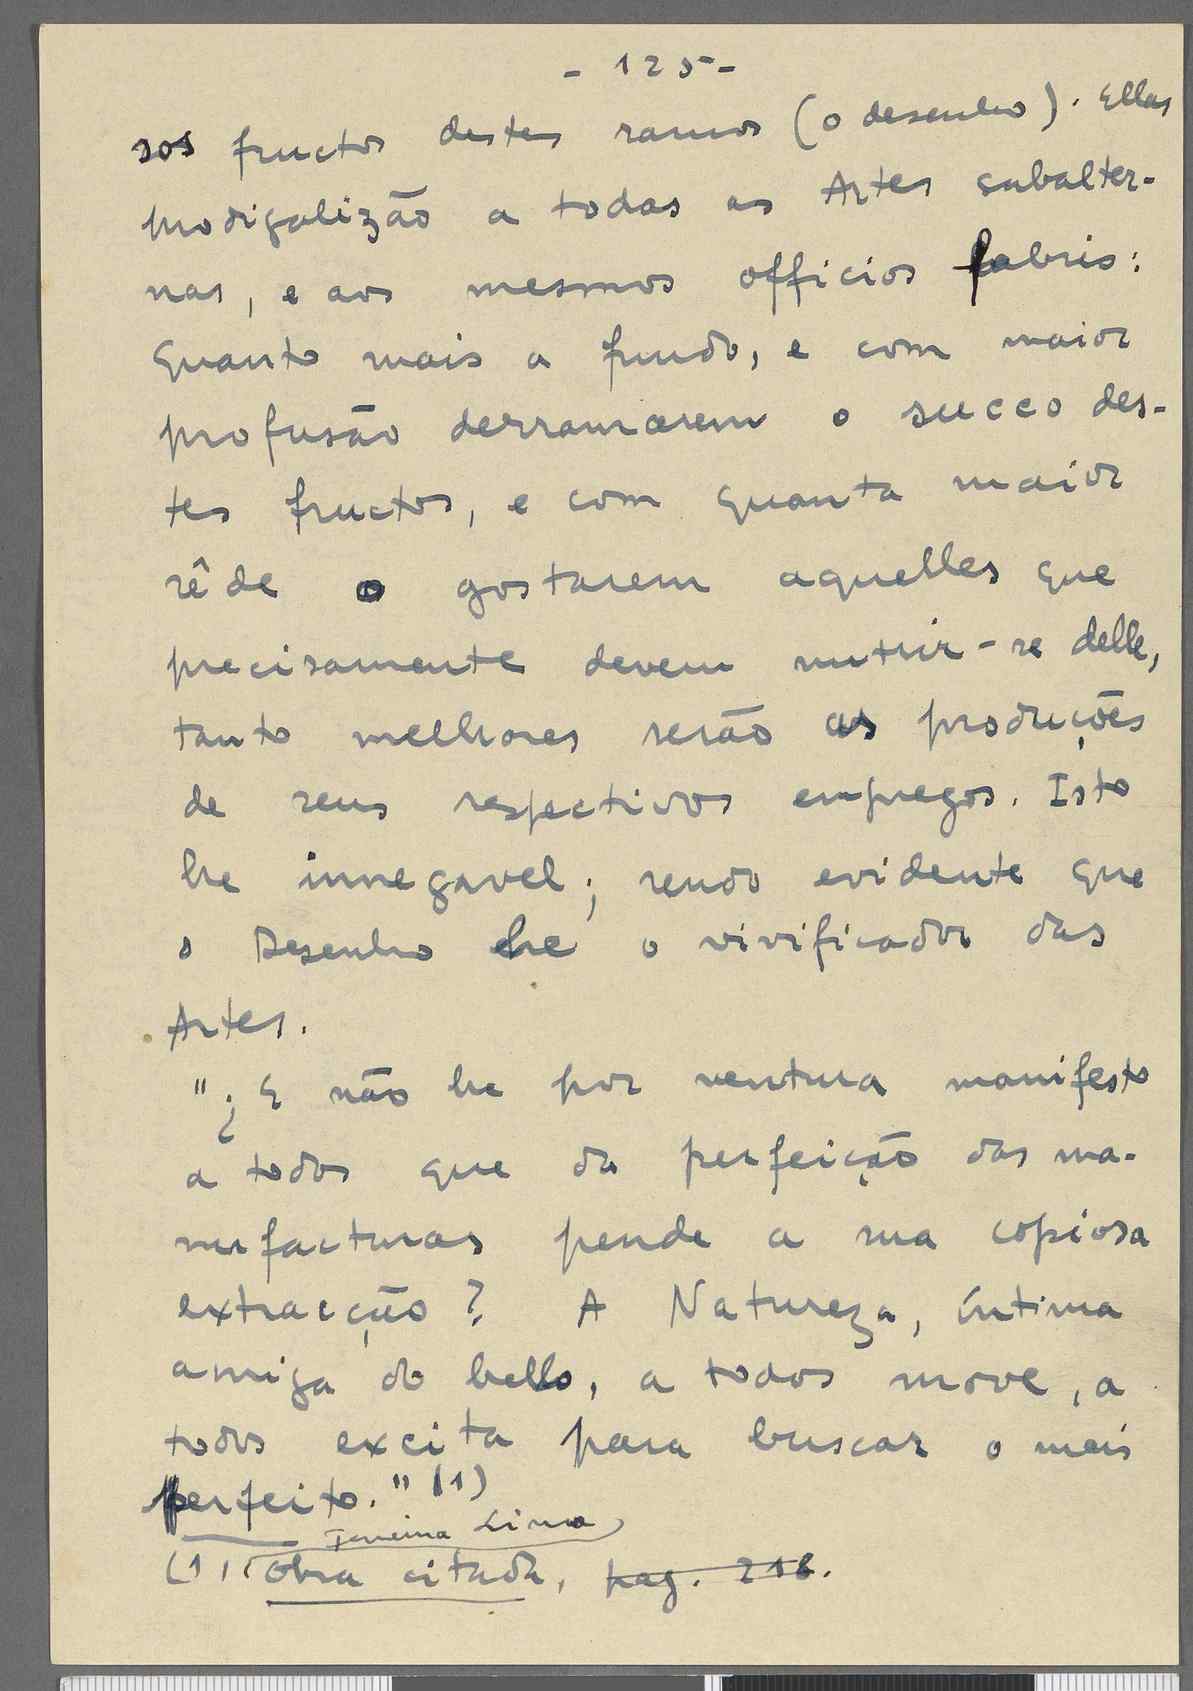 - 125 -
sos fructos destes ramos (o desenho). Ellas
prodigalizão a todas as Artes subalter-
nas, e aos mesmos officios fabris:
quanto mais a fundo, e com maior
profusão derramarem o succo des-
tes fructos, e com quanta maior
sêde o gostarem aquelles que
precisamente devem nutrir-se delle,
tanto melhores serão as produções
de seus respectivos empregos. Isto
he innegavel; sendo evidente que
o Desenho he o vivificador das
Artes.
"¿E não he por ventura manifesto
a todos que da perfeição das ma-
nufacturas pende a sua copiosa
extracção? A Natureza, íntima
amiga do bello, a todos move, a
todos excita para buscar o mais
perfeito." (1)
Ferreira Lima,
(1) Obra citada, pag. 216.